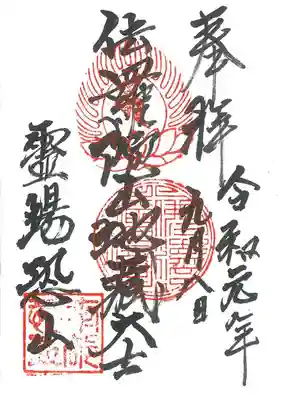 奉拝 令和元年
九月八日
伽羅陀山地蔵大士
霊場恐山